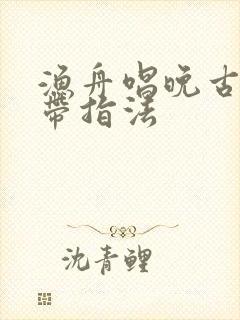 渔舟唱晚古
带指法
沈青鲤